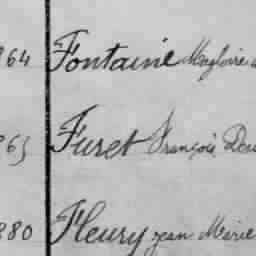 864 Fontaine Magloire
865 Furet François
880 Fleury jean Marie